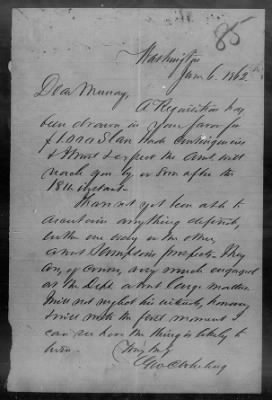 85
Washington
Jany 6. 1862
Dear Murray,
A Requisition has
been drawn in your favor for
Slave Trade contingencies
& I trust & expect the amt will
reach you by or soon after the
18th instant.
I have not yet been able to
ascertain anything definite,
either one way or the other,
about prospects. They
are, of course, very much engaged
at the Dept. about large matters
I will not neglect his interests, however,
& will write the first moment I
can see how the thing is likely to
turn.
Truly Yrs
Geo